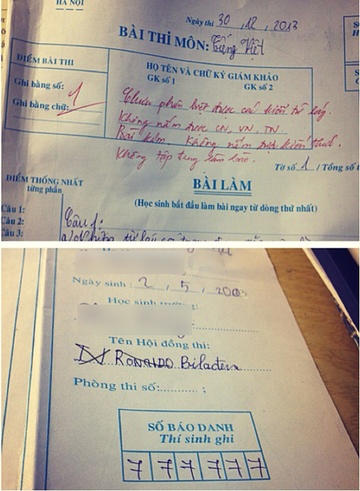 HÀ NỘI
Ngày thi 30, 12, 2013
BÀI THI MÔN: Tiếng Việt
ĐIỂM BÀI THI
HỌ TÊN VÀ CHỮ KÝ GIÁM KHẢO
GK số 1 GK số 2
Ghi bằng số: 1
Ghi bằng chữ:
Chưa phân biệt được các kiểu từ láy.
Không nắm được CN, VN, TN
Rất kém. Không nắm được kiến thức.
Không tập trung làm bài.
Tờ số 1 / Tổng số t
ĐIỂM THỐNG NHẤT
từng phần
BÀI LÀM
(Học sinh bắt đầu làm bài ngay từ dòng thứ nhất)
Câu 1:
Câu 2:
Câu 3:
Câu 1:
Ngày sinh: 2, 5, 2003
Học sinh trường:
Tên Hội đồng thi:
RONALDO Biladen
Phòng thi số: ;
SỐ BÁO DANH
Thí sinh ghi
7 7 7 7 7 7